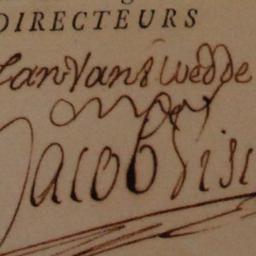 DIRECTEURS
Jan Van Swedde
Jacob Visc